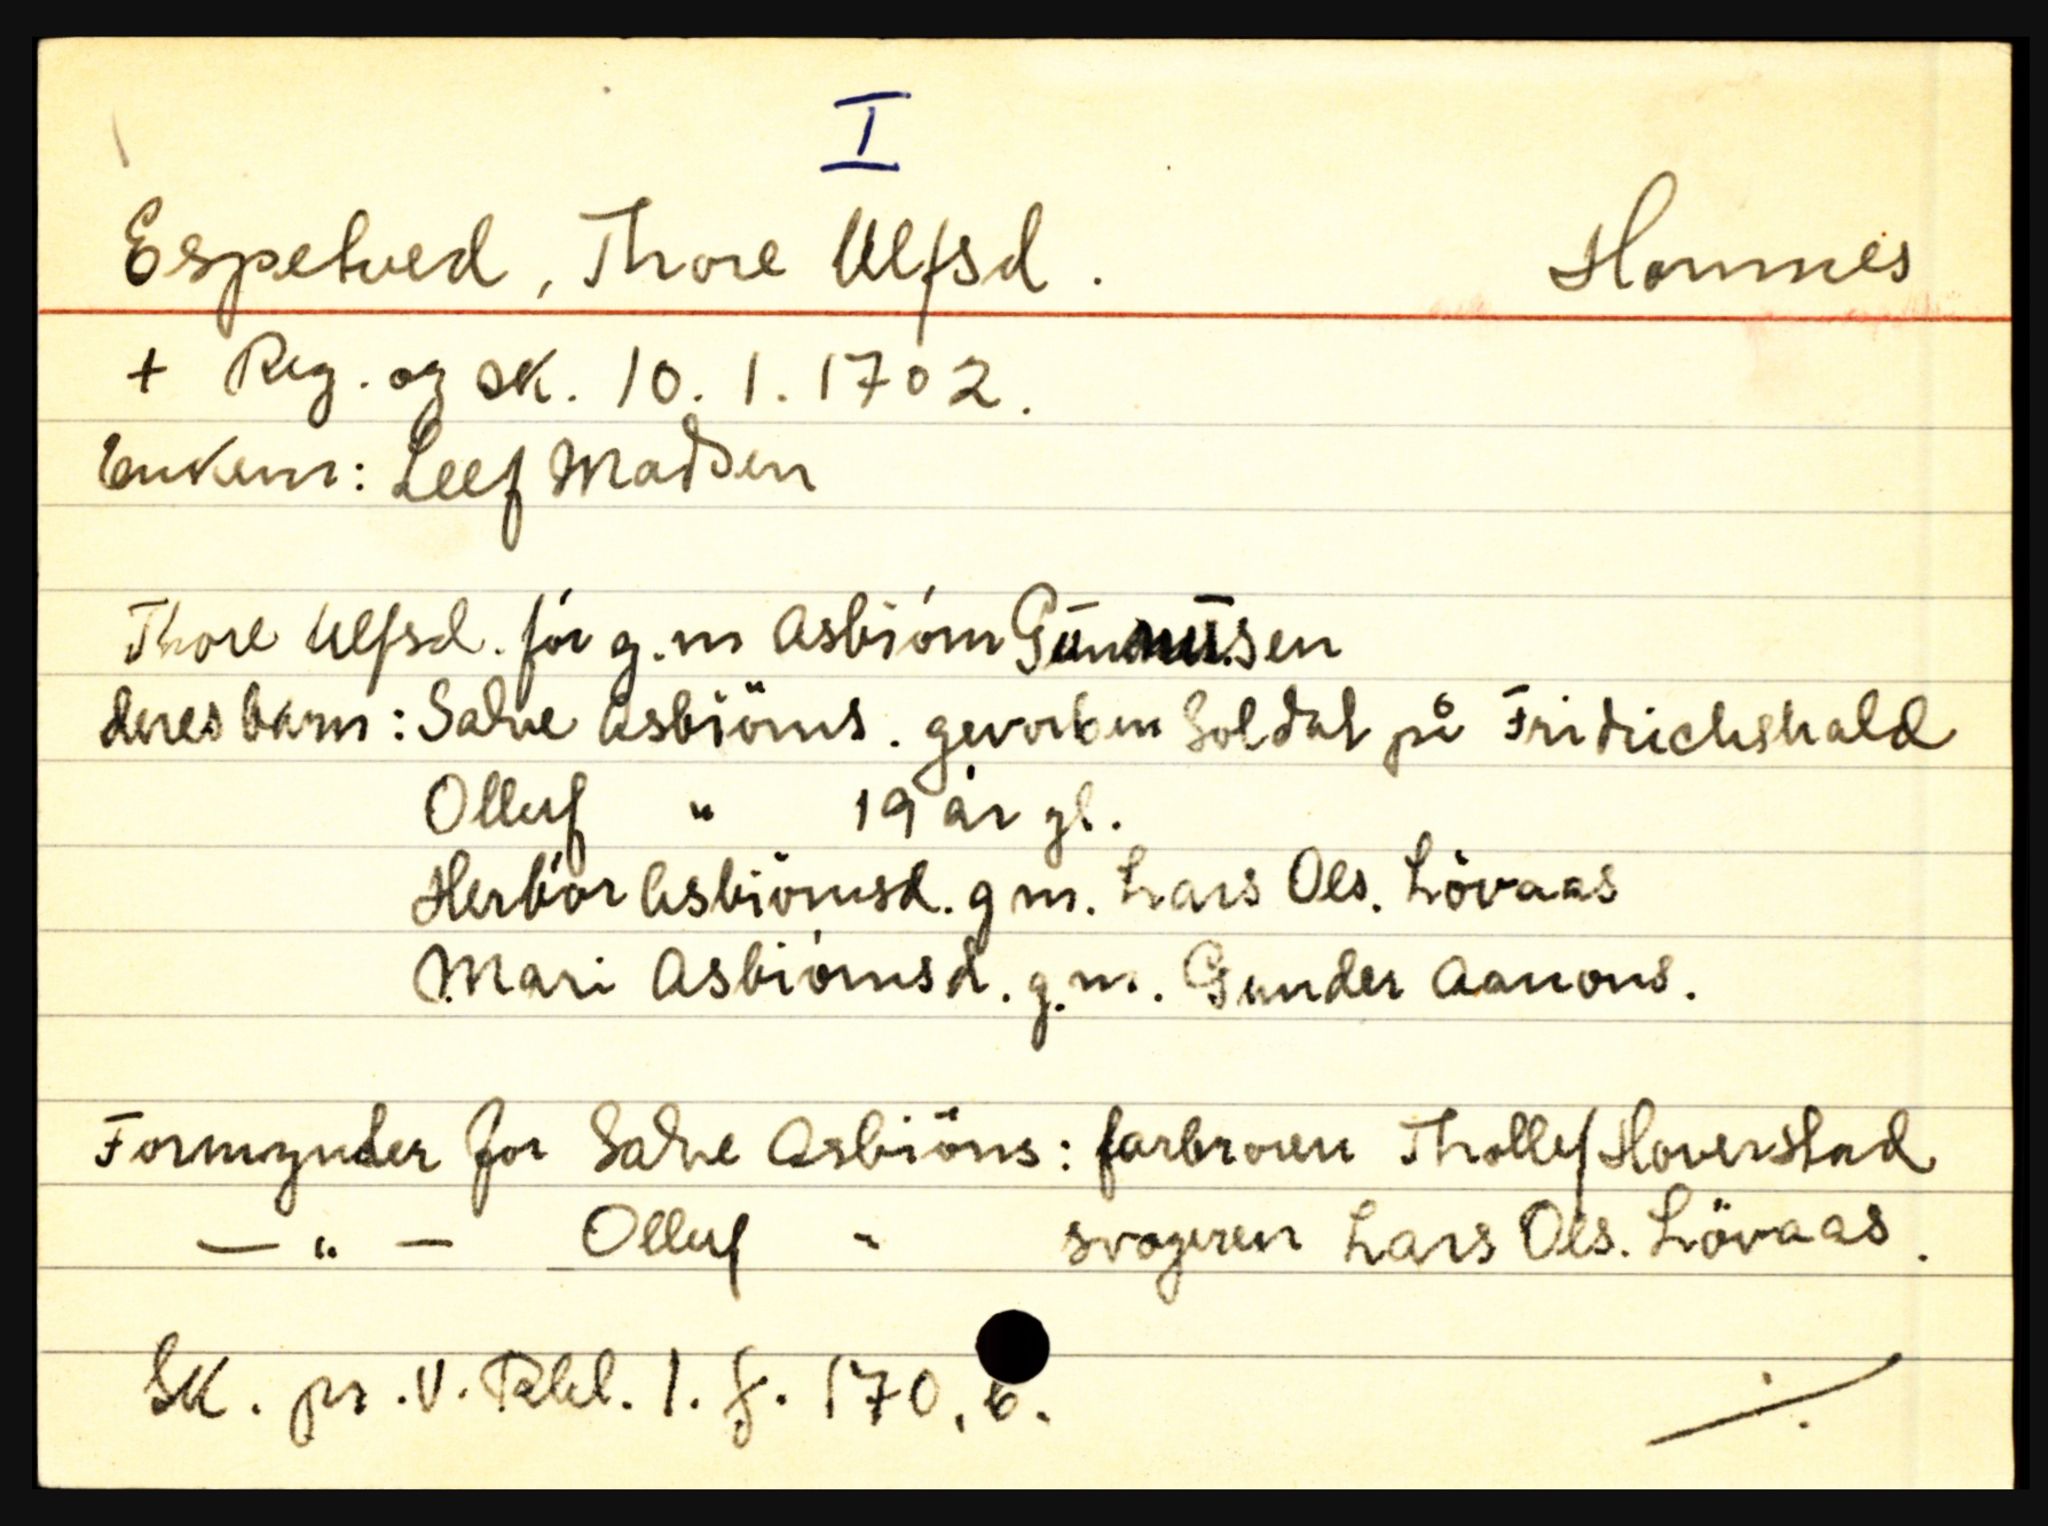 I
Espetved, Thore Ulfsd. Hommes
+ Reg. og sk. 10. 1. 1702.
Enkem: Leef Madsen
Thore Ulfsd. för g. m Asbiörn Gunnusen
deres barn: Salve Asbiörns. gevorben Soldat på Fridrichshald
Olluf " 19 år gl.
Herbor Asbiörnsd. g m. Lars Ols. Lövaas
Mari Asbiörnsd. g. m. Gunder Aanons.
Formynder for Salve Asbiöns: farbroren Thollef Haverstad
— " — Olluf " svogeren Lars Ols. Lövaas.
SK. pr. V. Rbl. 1. f. 170, b.
./.